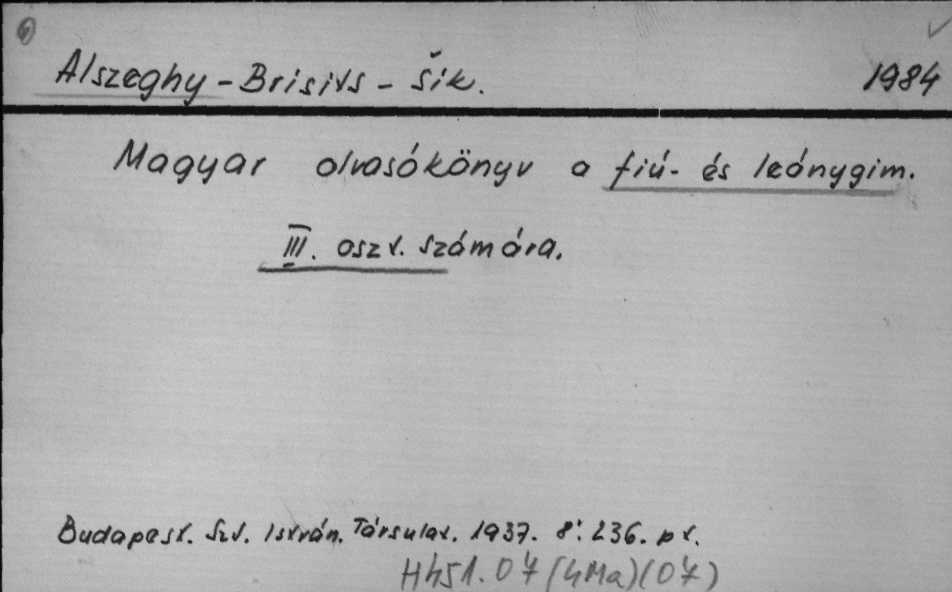 Alszeghy - Brisits - Šik. 1984
Magyar olvasókönyv a fiú- és leánygim.
III. oszt. számára.
Budapest. Szt. István. Társulat. 1937. 8°. 236. p t.
H451.07(4Ma)(07)